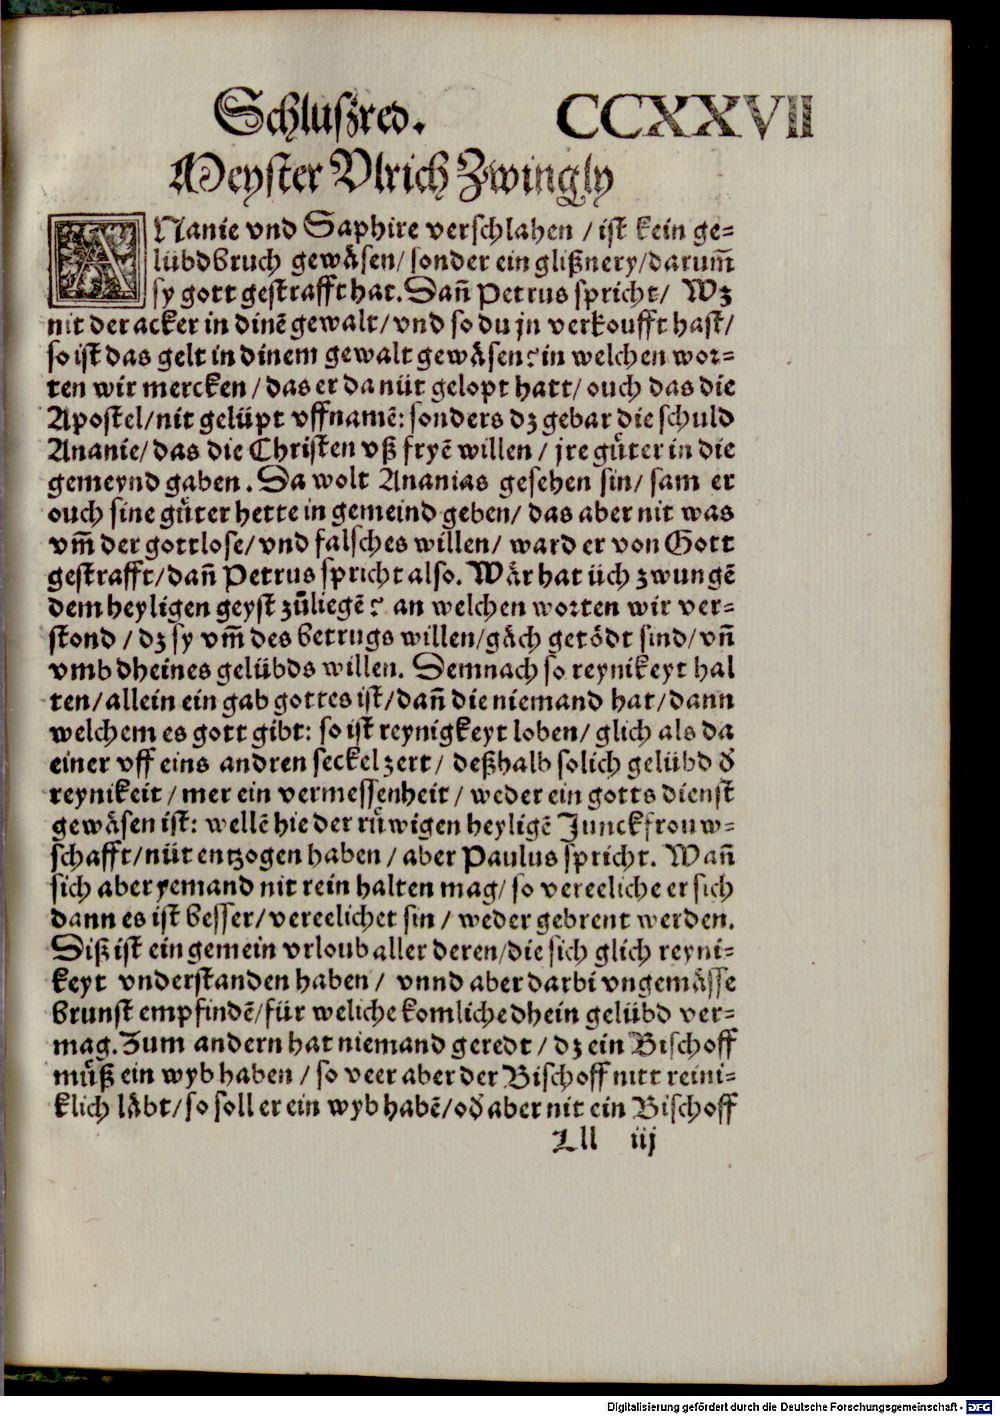 Schluszred. CCXXVII
Meyster Vlrich Zwingly
ANanie vnd Saphire verschlahen / ist kein ge=
lübdbruch gewäsen / sonder ein glißnery / darum̃
sy gott gestrafft hat. Dañ Petrus spricht / Wz
nit der acker in dinẽ gewalt / vnd so du jn verkoufft hast /
so ist das gelt in dinem gewalt gewäsen? in welchen wor=
ten wir mercken / das er da nüt gelopt hatt / ouch das die
Apostel / nit gelüpt vffnamẽ: sonders dz gebar die schuld
Ananie / das die Christen vß fryẽ willen / jre gůter in die
gemeynd gaben. Da wolt Ananias gesehen sin / sam er
ouch sine gůter hette in gemeind geben / das aber nit was
vm̃ der gottlose / vnd falsches willen / ward er von Gott
gestrafft / dañ Petrus spricht also. Wär hat üch zwungẽ
dem heyligen geyst zůliegẽ? an welchen worten wir ver=
stond / dz sy vm̃ des betrugs willen / gäch getödt sind / vñ
vmb dheines gelübds willen. Demnach so reynikeyt hal
ten / allein ein gab gottes ist / dañ die niemand hat / dann
welchem es gott gibt: so ist reynigkeyt loben / glich als da
einer vff eins andren seckel zert / deßhalb solich gelübd ď
reynikeit / mer ein vermessenheit / weder ein gotts dienst
gewäsen ist: wellẽ hie der růwigen heyligẽ Junckfrouw=
schafft / nüt entzogen haben / aber Paulus spricht. Wañ
sich aber yemand nit rein halten mag / so vereeliche er sich
dann es ist besser / vereelichet sin / weder gebrent werden.
Diß ist ein gemein vrloub aller deren / die sich glich reyni=
keyt vnderstanden haben / vnnd aber darbi vngemässe
brunst empfindẽ / für weliche komliche dhein gelübd ver=
mag. Zum andern hat niemand geredt / dz ein Bischoff
můß ein wyb haben / so veer aber der Bischoff nitt reini=
klich läbt / so soll er ein wyb habẽ / oď aber nit ein Bischoff
Lll iij
Digitalisierung gefördert durch die Deutsche Forschungsgemeinschaft - DFG